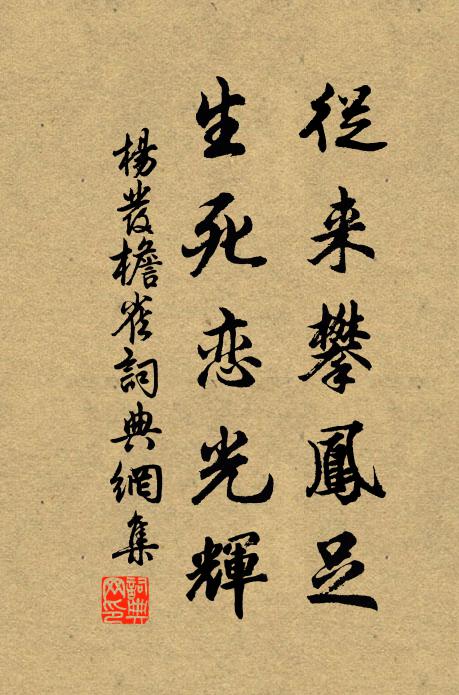 從来攀鳳足
生死恋光輝
楊發檐雀詞典網集
詞典网印